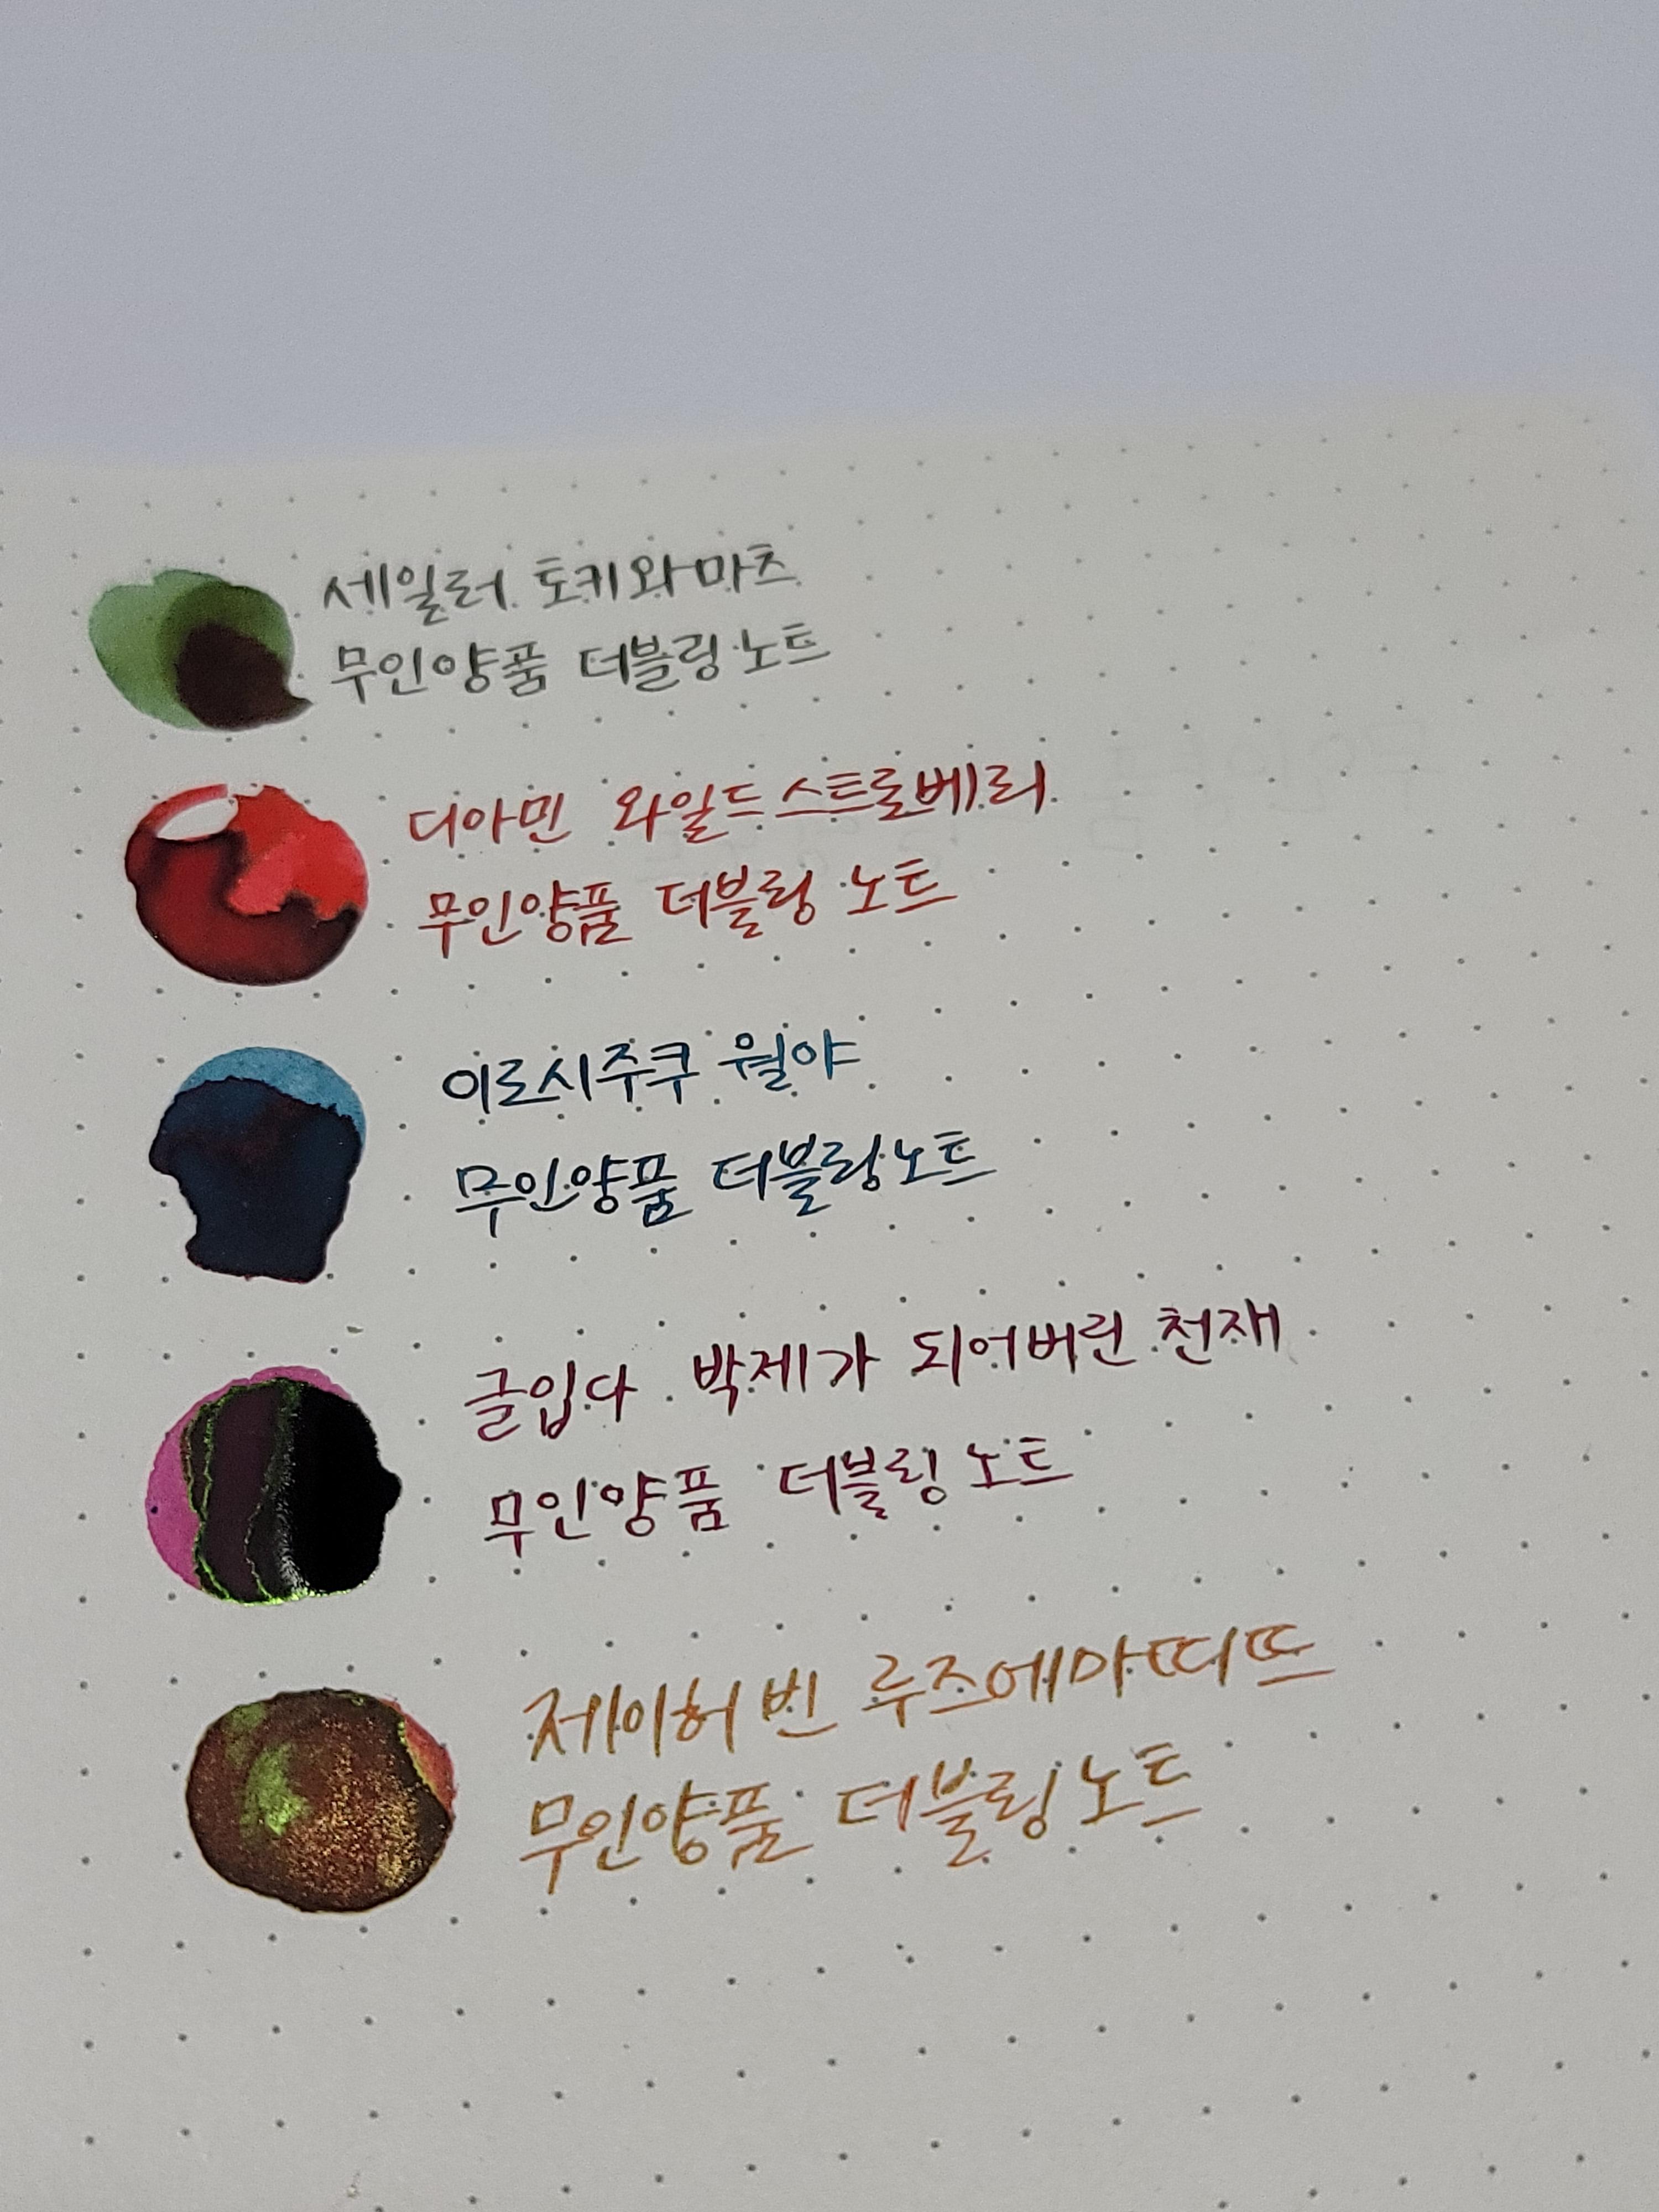 세일러 토키와마츠
무인양품 더블링노트
디아민 와일드스트로베리
무인양품 더블링 노트
이로시주쿠 월야
무인양품 더블링노트
글입다 박제가 되어버린 천재
무인양품 더블링노트
제이허빈 루즈에마띠뜨
무인양품 더블링노트